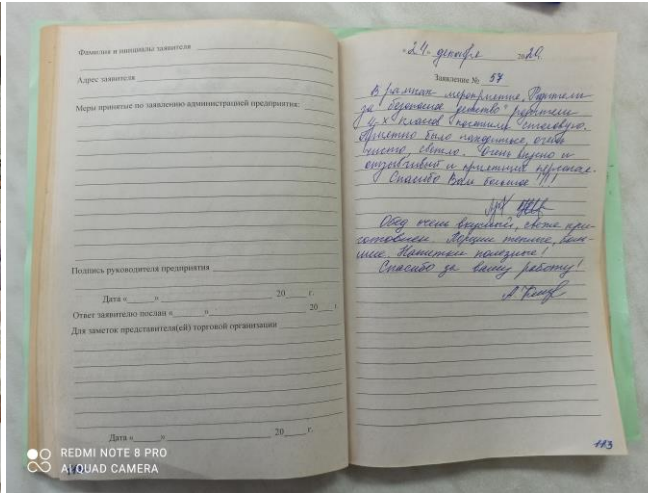 Фамилия и инициалы заявителя
Адрес заявителя
Меры принятые по заявлению администрацией предприятия:
Подпись руководителя предприятия
Дата «____» 20__ г.
Ответ заявителю послан «____» 20__ г
Для заметок представителя(ей) торговой организации
Дата «____» 20__ г.
REDMI NOTE 8 PRO
AI QUAD CAMERA
«24» декабря 20
Заявление № 57
В рамках мероприятия "Родители
за безопасное детство" родители
4-х классов посетили столовую.
Приятно было находиться, очень
чисто, светло. Очень вкусно и
отзывчивый и приятный персонал.
Спасибо Вам большое !!!
Обед очень вкусный, свеже при-
готовлен. Порции теплые, боль-
шие. Напитки полезные!
Спасибо за вашу работу!
113